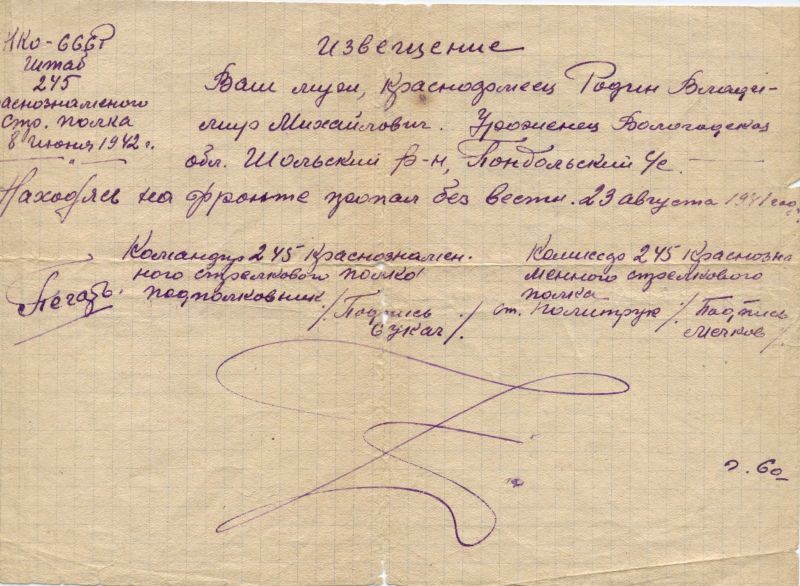 НКО-666Р
Штаб
245
аснознаменого
стр. полка
8 июня 1942 г.
Извещение
Ваш муж, красноармеец Родин Влади-
мир Михайлович. Уроженец Вологодской
обл. Шольский р-н, Пондольский с/с.
Находясь на фронте пропал без вести. 23 августа 1941 года
Командир 245 Краснознамен-
ного стрелкового полка
подполковник /Подпись
Сукач/.
Комиссар 245 Краснозна
менного стрелкового
полка
ст. политрук /Подпись
Мечков/.
Печать.